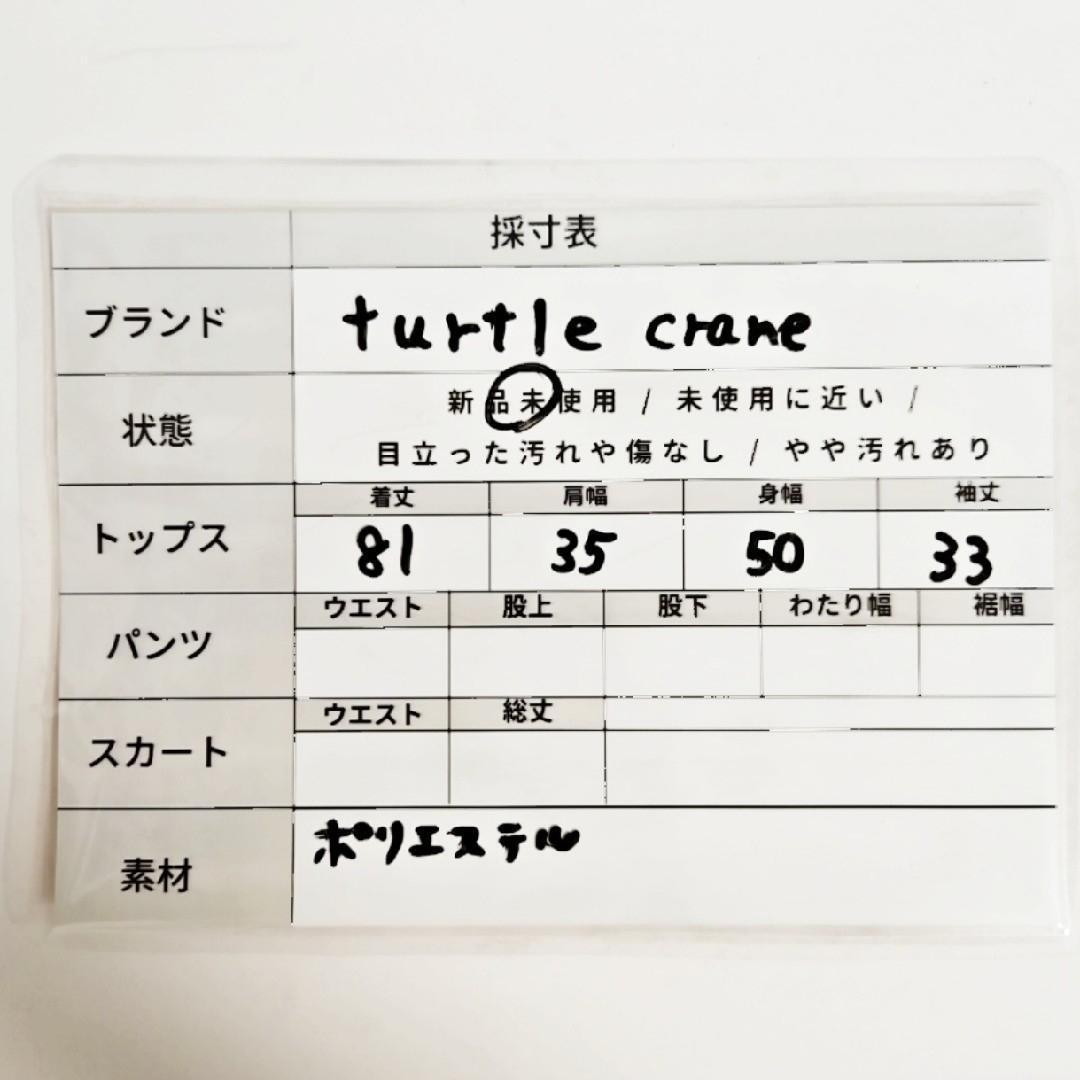 採寸表
ブランド turtle crane
状態 新品未使用 / 未使用に近い /
目立った汚れや傷なし / やや汚れあり
トップス 着丈 肩幅 身幅 袖丈
81 35 50 33
パンツ ウエスト 股上 股下 わたり幅 裾幅
スカート ウエスト 総丈
素材 ポリエステル